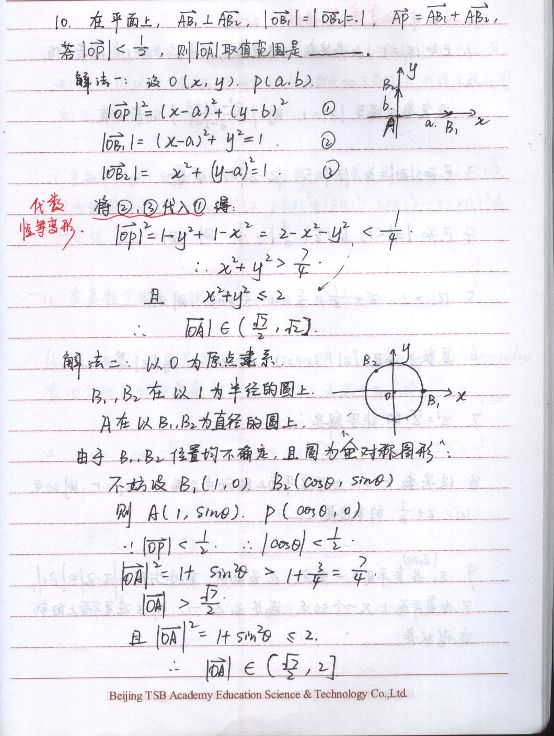 10. 在平面上, AB₁⊥AB₂, |OB₁|=|OB₂|=1, AP=AB₁+AB₂,
若|OP|<1/2, 则|OA|取值范围是 ______.
解法一: 设O(x,y). P(a,b).
|OP|²=(x-a)²+(y-b)² ①
|OB₁|=(x-a)²+y²=1 ②
|OB₂|= x²+(y-b)²=1 ③
代数
恒等变形.
将②,③代入①得:
|OP|²=1-y²+1-x²=2-x²-y²<1/4
∴ x²+y²>7/4
且 x²+y²≤2
∴ |OA|∈(√7/2,√2].
y
B₂
b
A
a
B₁
x
解法二: 以O为原点建系.
B₁,B₂在以1为半径的圆上.
A在以B₁B₂为直径的圆上.
y
B₂
O
B₁
x
由于B₁,B₂位置均不确定,且圆为"全对称图形":
不妨设B₁(1,0) B₂(cosθ,sinθ)
则A(1,sinθ). P(cosθ,0)
∵|OP|<1/2. ∴|cosθ|<1/2.
|OA|²=1+sin²θ>1+3/4=7/4.
|OA|>√7/2.
且|OA|²=1+sin²θ≤2.
∴ |OA|∈(√7/2,2]
Beijing TSB Academy Education Science & Technology Co.,Ltd.